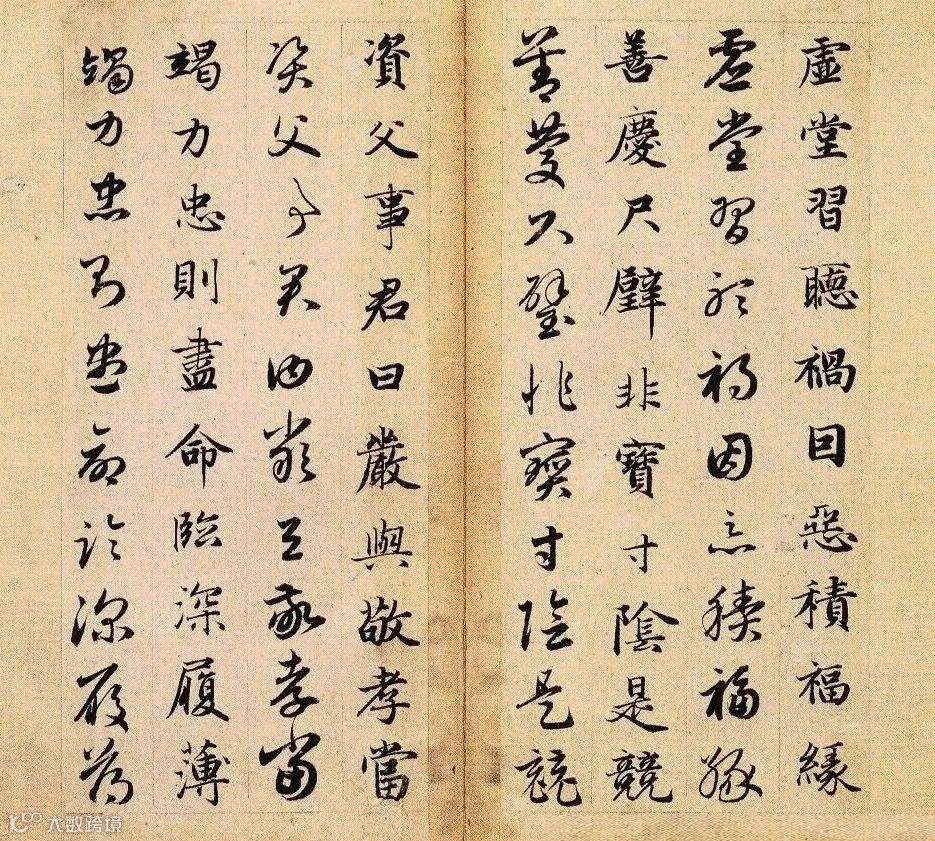 虛堂習聽禍因惡積福緣
虛堂習聽禍因惡積福緣
善慶尺璧非寶寸陰是競
善慶尺璧非寶寸陰是競
資父事君曰嚴與敬孝當
資父事君曰嚴與敬孝當
竭力忠則盡命臨深履薄
竭力忠則盡命臨深履薄
大数跨境